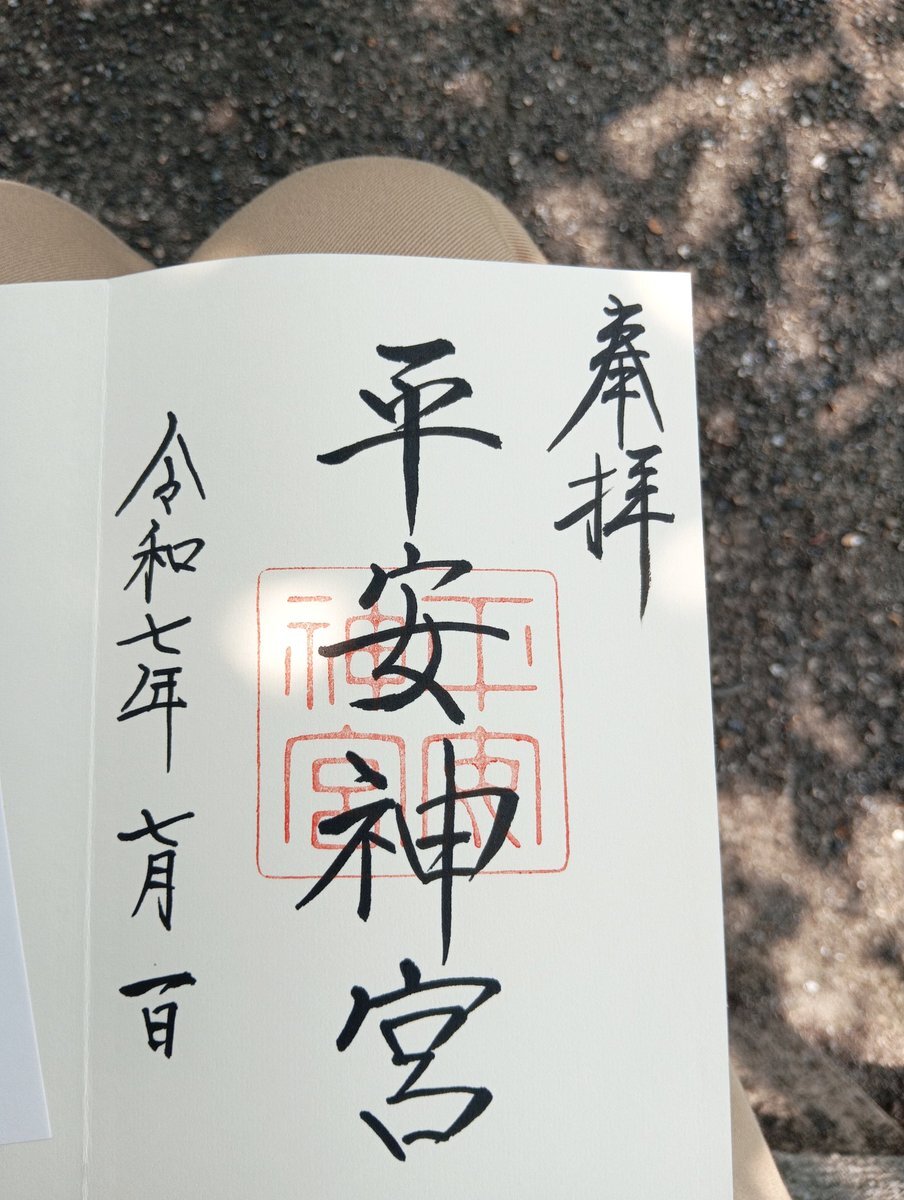 奉拝
平安神宮
平安神宮
令和七年七月一日